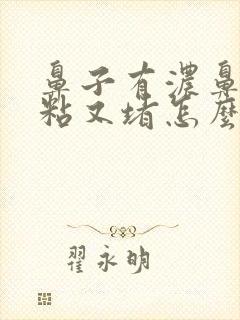 鼻子有濃鼻
粘又堵怎麼
翟永明